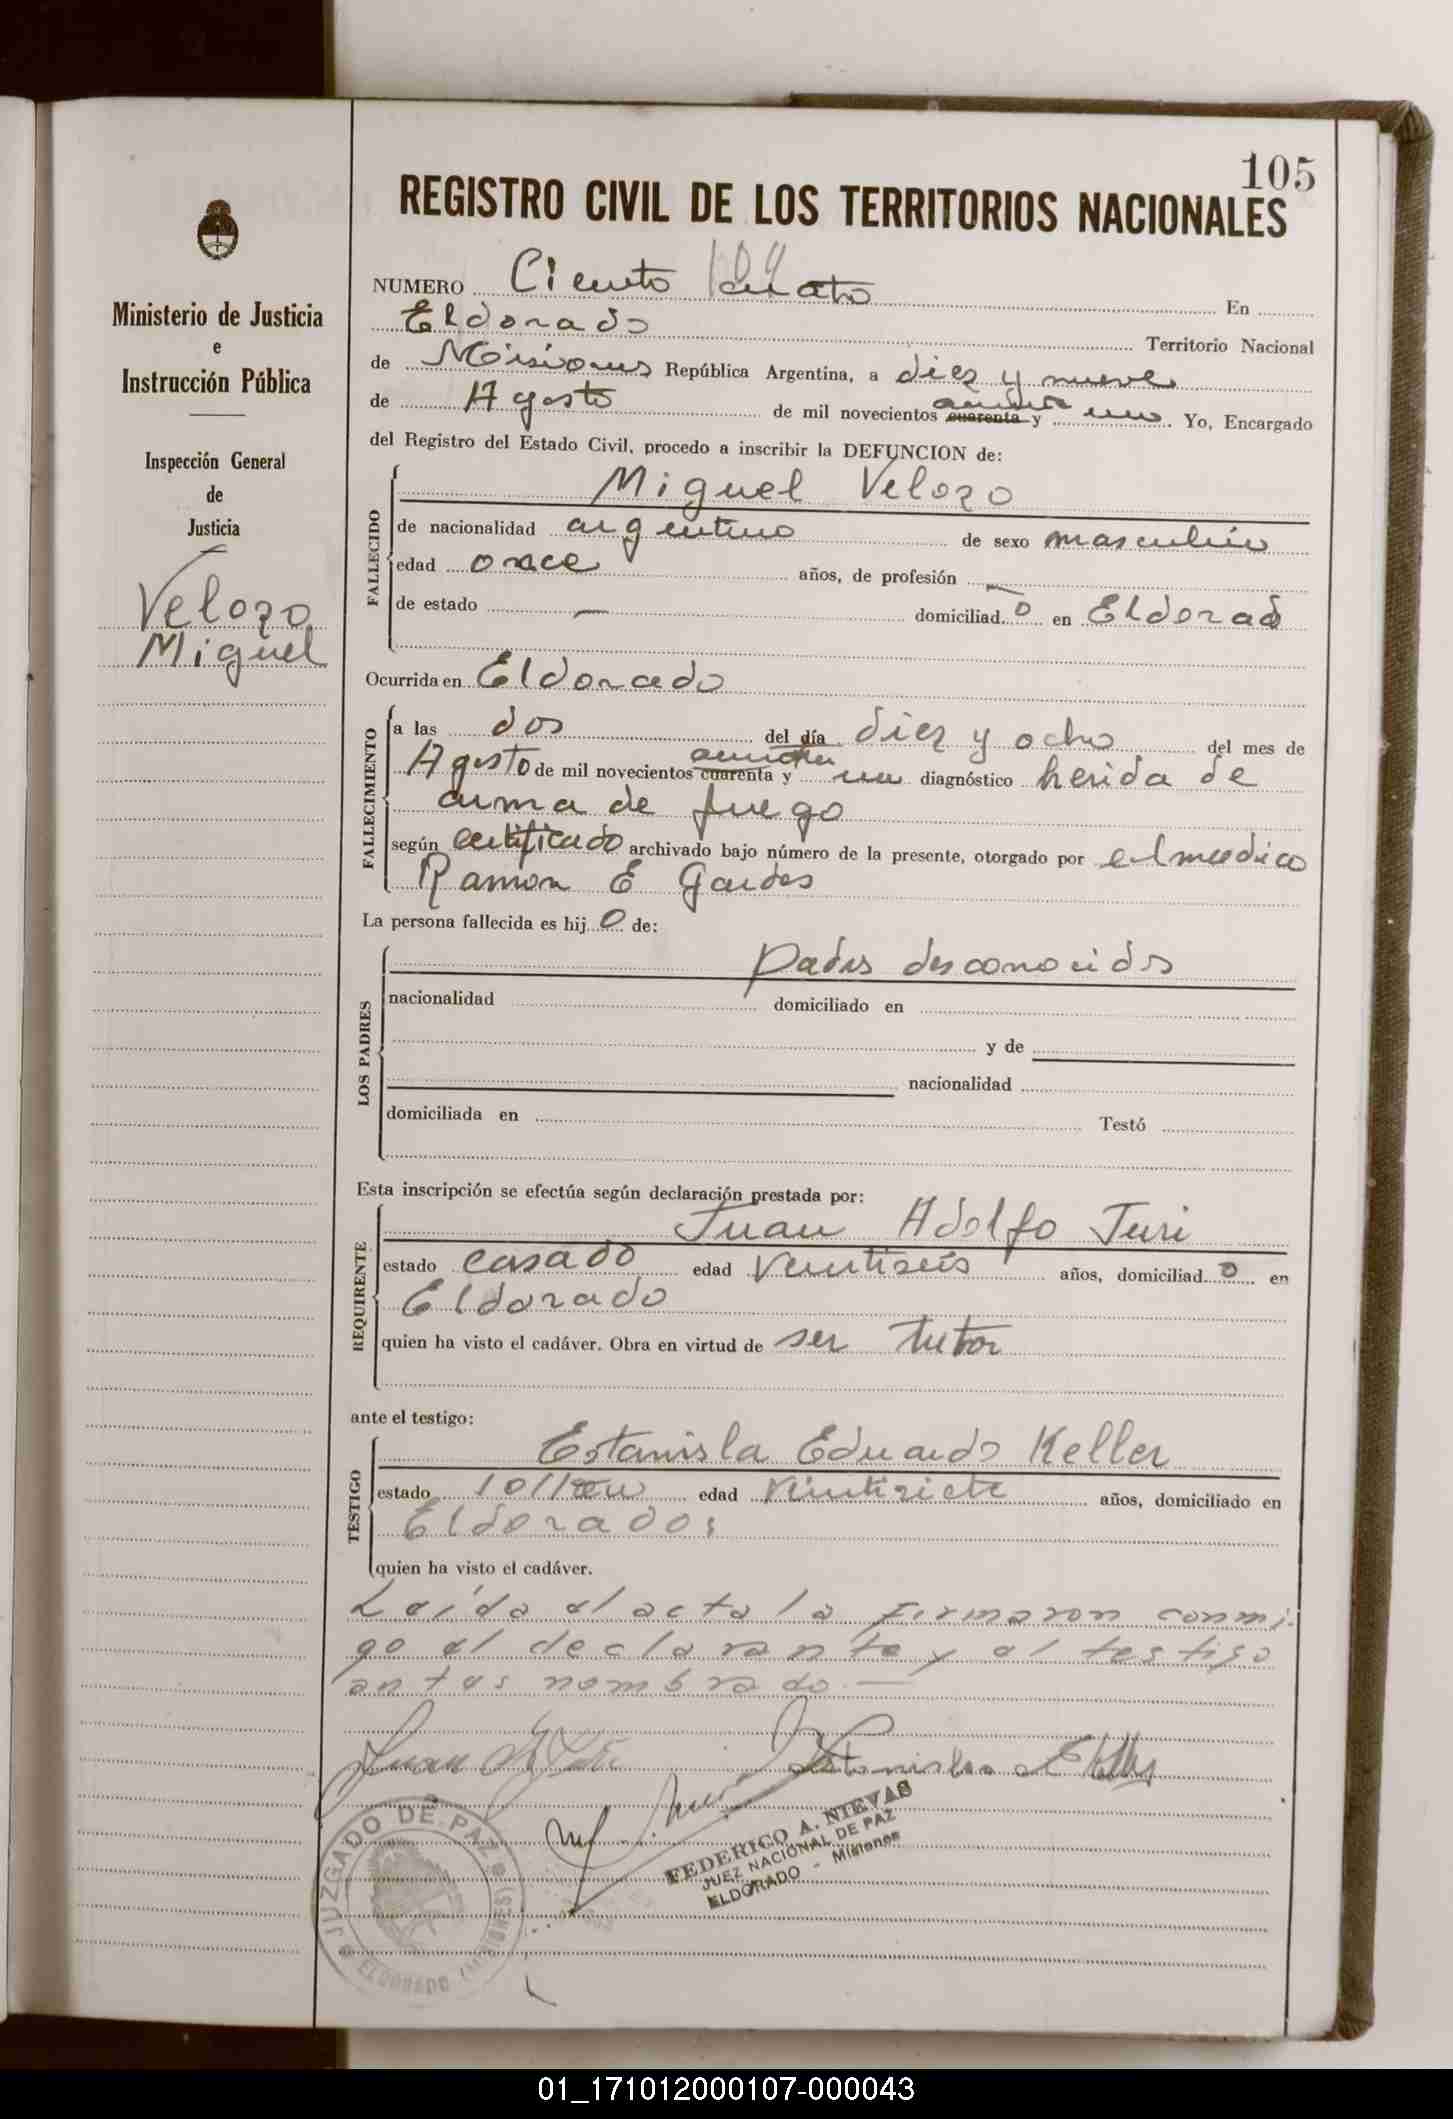 105
REGISTRO CIVIL DE LOS TERRITORIOS NACIONALES
Ministerio de Justicia
e
Instrucción Pública
Inspección General
de
Justicia
Velozo
Miguel
NUMERO Ciento En
Eldorado Territorio Nacional
de Misiones República Argentina, a diez y nueve
de Agosto de mil novecientos cuarenta y uno Yo, Encargado
del Registro del Estado Civil, procedo a inscribir la DEFUNCION de:
Miguel Velozo
FALLECIDO
de nacionalidad argentino de sexo masculino
edad once años, de profesión —
de estado — domiciliad o en Eldorado
Ocurrida en Eldorado
FALLECIMIENTO
a las dos del día diez y ocho del mes de
Agosto de mil novecientos cuarenta y un diagnóstico herida de
arma de fuego
según certificado archivado bajo número de la presente, otorgado por el medico
Ramon E
La persona fallecida es hij o de:
LOS PADRES
Padres desconocidos
nacionalidad domiciliado en
y de
nacionalidad
domiciliada en Testó
Esta inscripción se efectúa según declaración prestada por:
REQUIRENTE
Juan Adolfo Turi
estado casado edad veintiseis años, domiciliad o en
Eldorado
quien ha visto el cadáver. Obra en virtud de ser tutor
ante el testigo:
TESTIGO
Estanisla Eduardo Keller
estado soltero edad veintisiete años, domiciliado en
Eldorado
quien ha visto el cadáver.
Leída el acta la firmaron conmi-
go el declarante y el testigo
antes nombrado.—
FEDERICO A. NIEVAS
JUEZ NACIONAL DE PAZ
ELDORADO - Misiones
JUZGADO DE PAZ
ELDORADO (MISIONES)
01_171012000107-000043